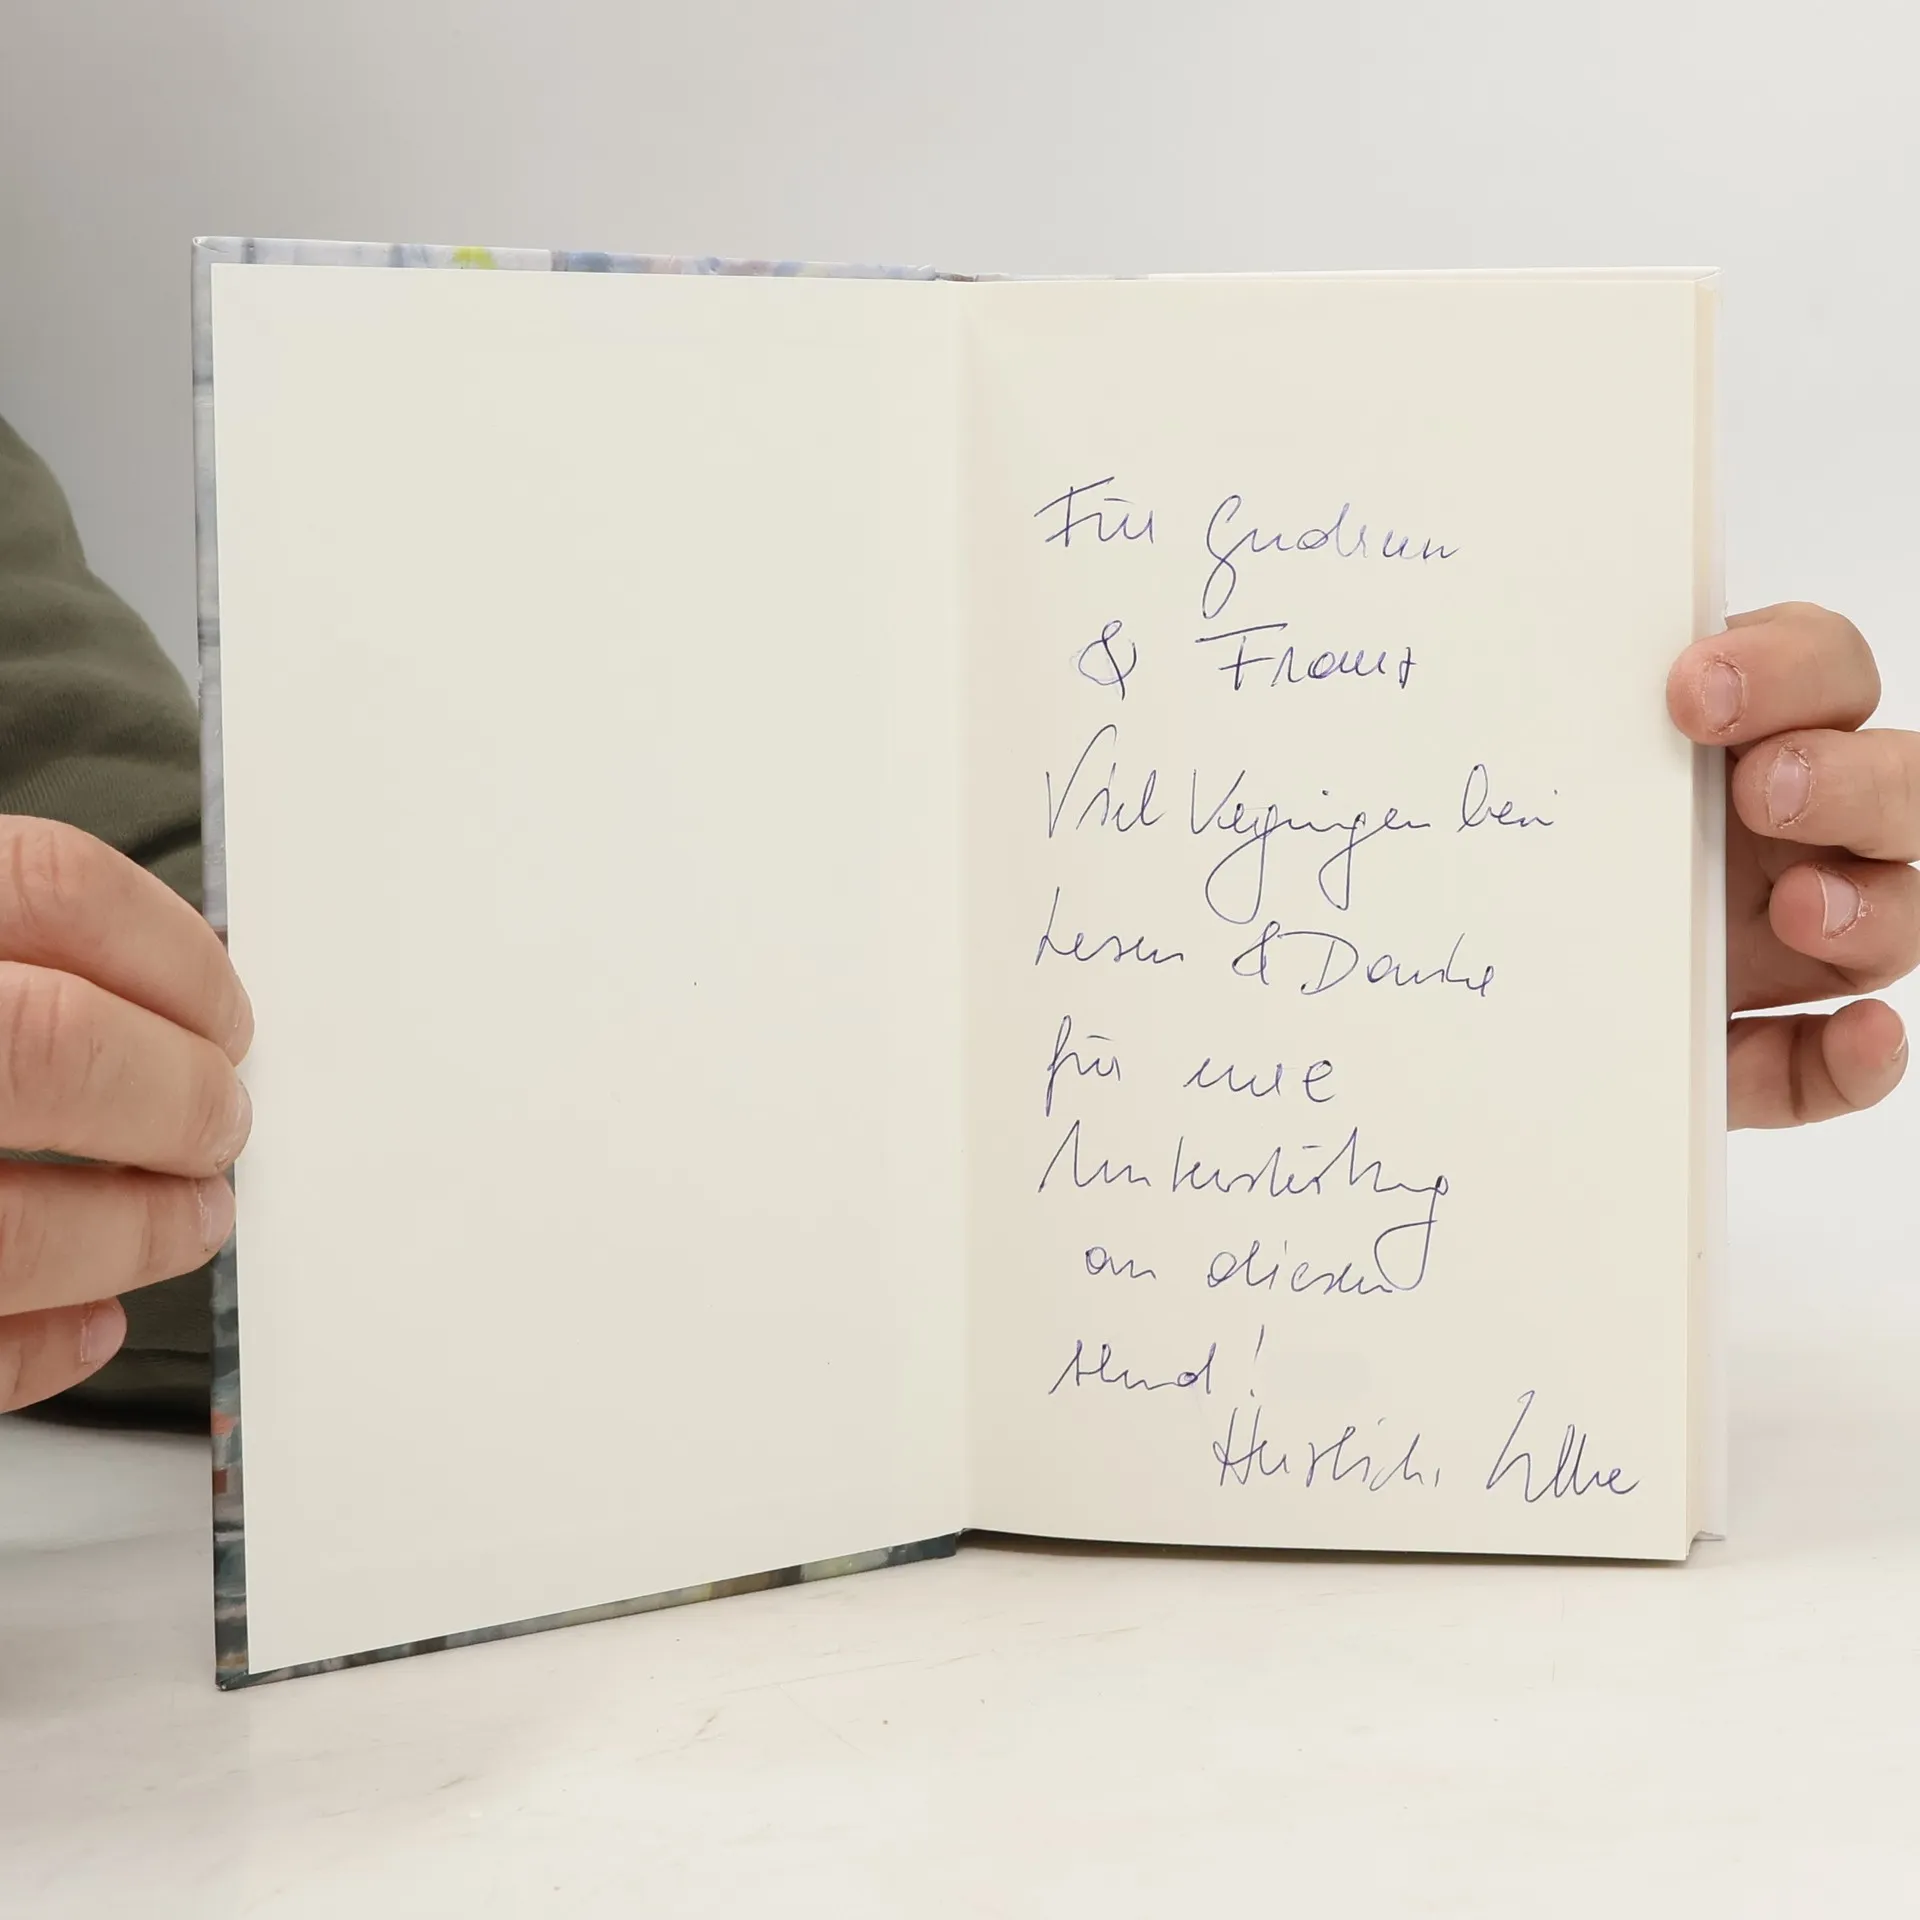 Für Gudrun
& Franz
Viel Vergnügen bein
Lesen & Danke
für eure
Unterstützung
an diesem
Abend!
Herzlich,